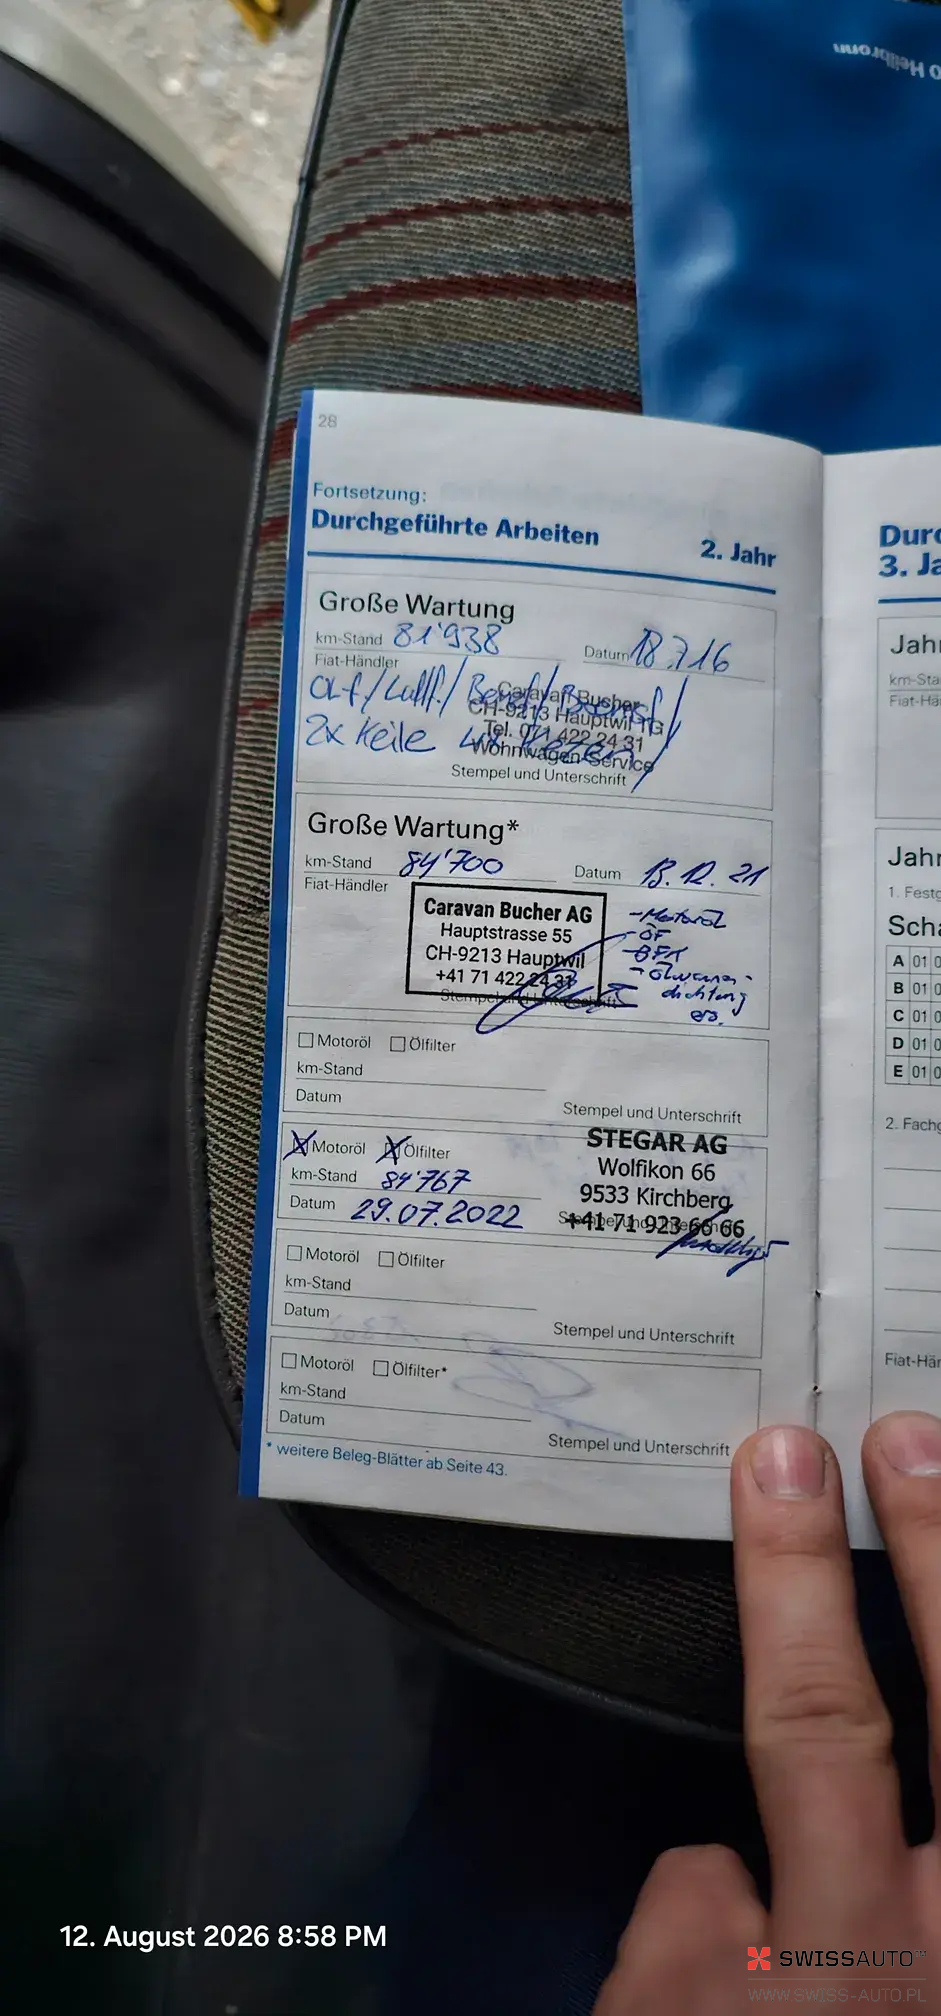 0 Heilbronn
28
Fortsetzung:
Durchgeführte Arbeiten
2. Jahr
Große Wartung
km-Stand 81'938 Datum 18.7.16
Fiat-Händler
Ölf/Luftf./
Caravan Bucher
CH-9213 Hauptwil TG
Tel. 071 422 24 31
Wohnwagen-Service
2x Keile
Stempel und Unterschrift
Große Wartung*
km-Stand 84'700 Datum 13.12.21
Fiat-Händler
Caravan Bucher AG
Hauptstrasse 55
CH-9213 Hauptwil
+41 71 422 24 31
Stempel und Unterschrift
- Motoröl
- ÖF
- BFK
- Ölwannen-
dichtung
ers.
Motoröl Ölfilter
km-Stand
Datum
Stempel und Unterschrift
X Motoröl X Ölfilter
km-Stand 84'767
Datum 29.07.2022
STEGAR AG
Wolfikon 66
9533 Kirchberg
+41 71 923 66 66
Stempel und Unterschrift
Motoröl Ölfilter
km-Stand
Datum
Stempel und Unterschrift
Motoröl Ölfilter*
km-Stand
Datum
Stempel und Unterschrift
* weitere Beleg-Blätter ab Seite 43.
Durc
3. Ja
Jahr
km-Sta
Fiat-Hä
Jahr
1. Festg
Scha
A 01 0
B 01 0
C 01 0
D 01 0
E 01 0
2. Fachg
Fiat-Hän
12. August 2026 8:58 PM
SWISSAUTO™
WWW.SWISS-AUTO.PL